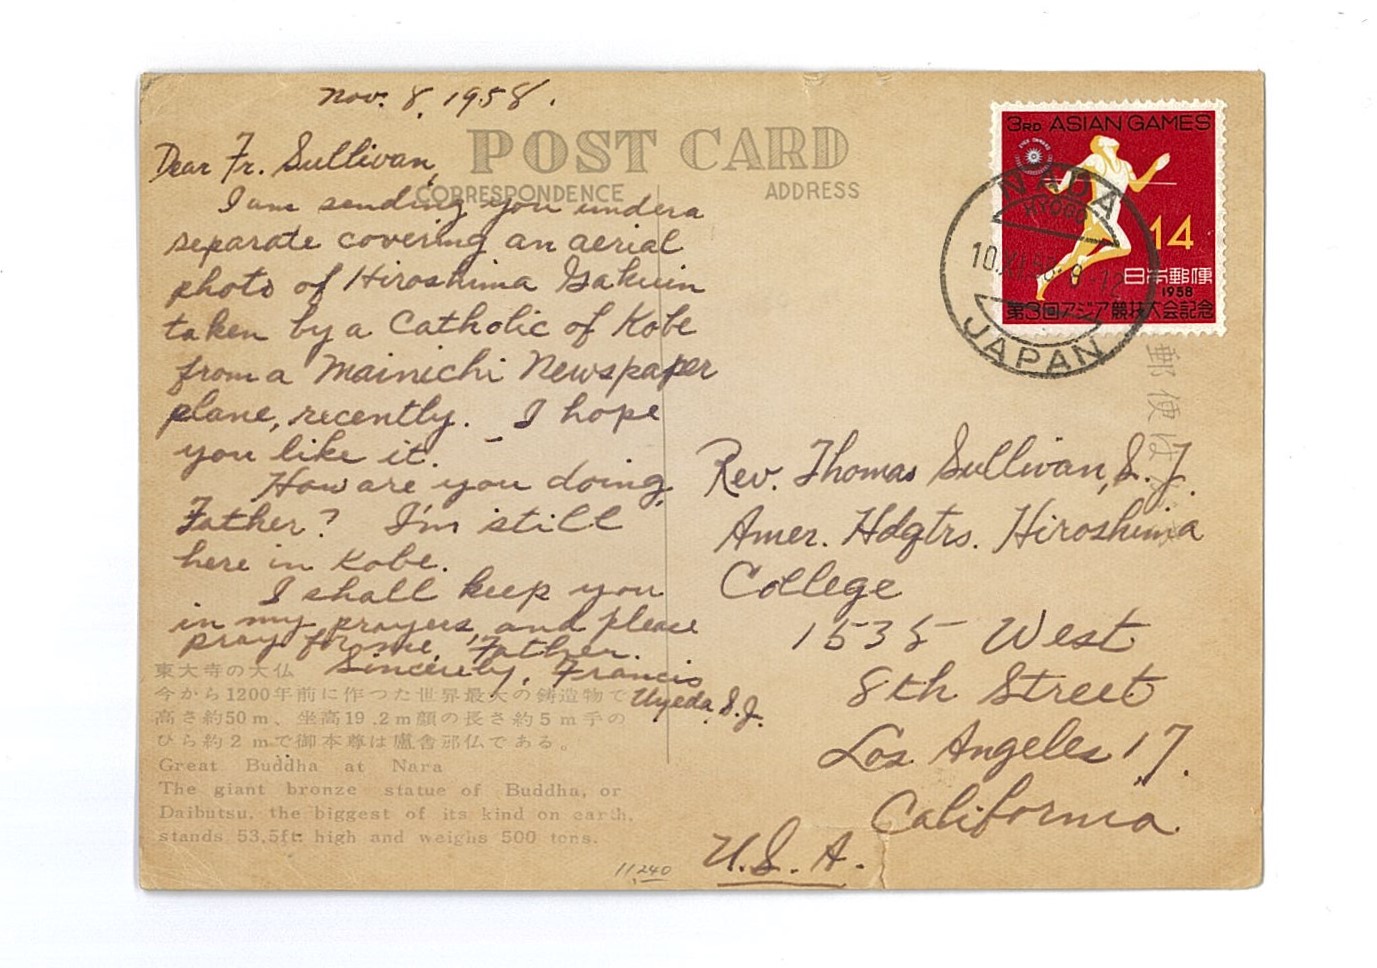 Nov. 8, 1958.
POST CARD
CORRESPONDENCE
ADDRESS
Dear Fr. Sullivan,
I am sending you under a
separate covering an aerial
photo of Hiroshima Gakuin
taken by a Catholic of Kobe
from a Mainichi Newspaper
plane, recently. I hope
you like it.
How are you doing,
Father? I'm still
here in Kobe.
I shall keep you
in my prayers, and please
pray for me, Father.
Sincerely, Francis
Uyeda, S.J.
東大寺の大仏
今から1200年前に作つた世界最大の鋳造物で
高さ約50m、坐高19.2m顔の長さ約5m手の
ひら約2mで御本尊は盧舎那仏である。
Great Buddha at Nara
The giant bronze statue of Buddha, or
Daibutsu, the biggest of its kind on earth,
stands 53.5ft high and weighs 500 tons.
11,240
3RD ASIAN GAMES
14
日本郵便
1958
第3回アジア競技大会記念
NADA
HYOGO
JAPAN
郵便は
Rev. Thomas Sullivan, S.J.
Amer. Hdqtrs. Hiroshima
College
1535 West
8th Street
Los Angeles 17.
California
U.S.A.